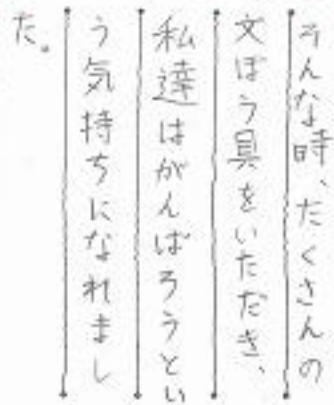 そんな時、たくさんの
文ぼう具をいただき、
私達はがんばろうとい
う気持ちになれまし
た。